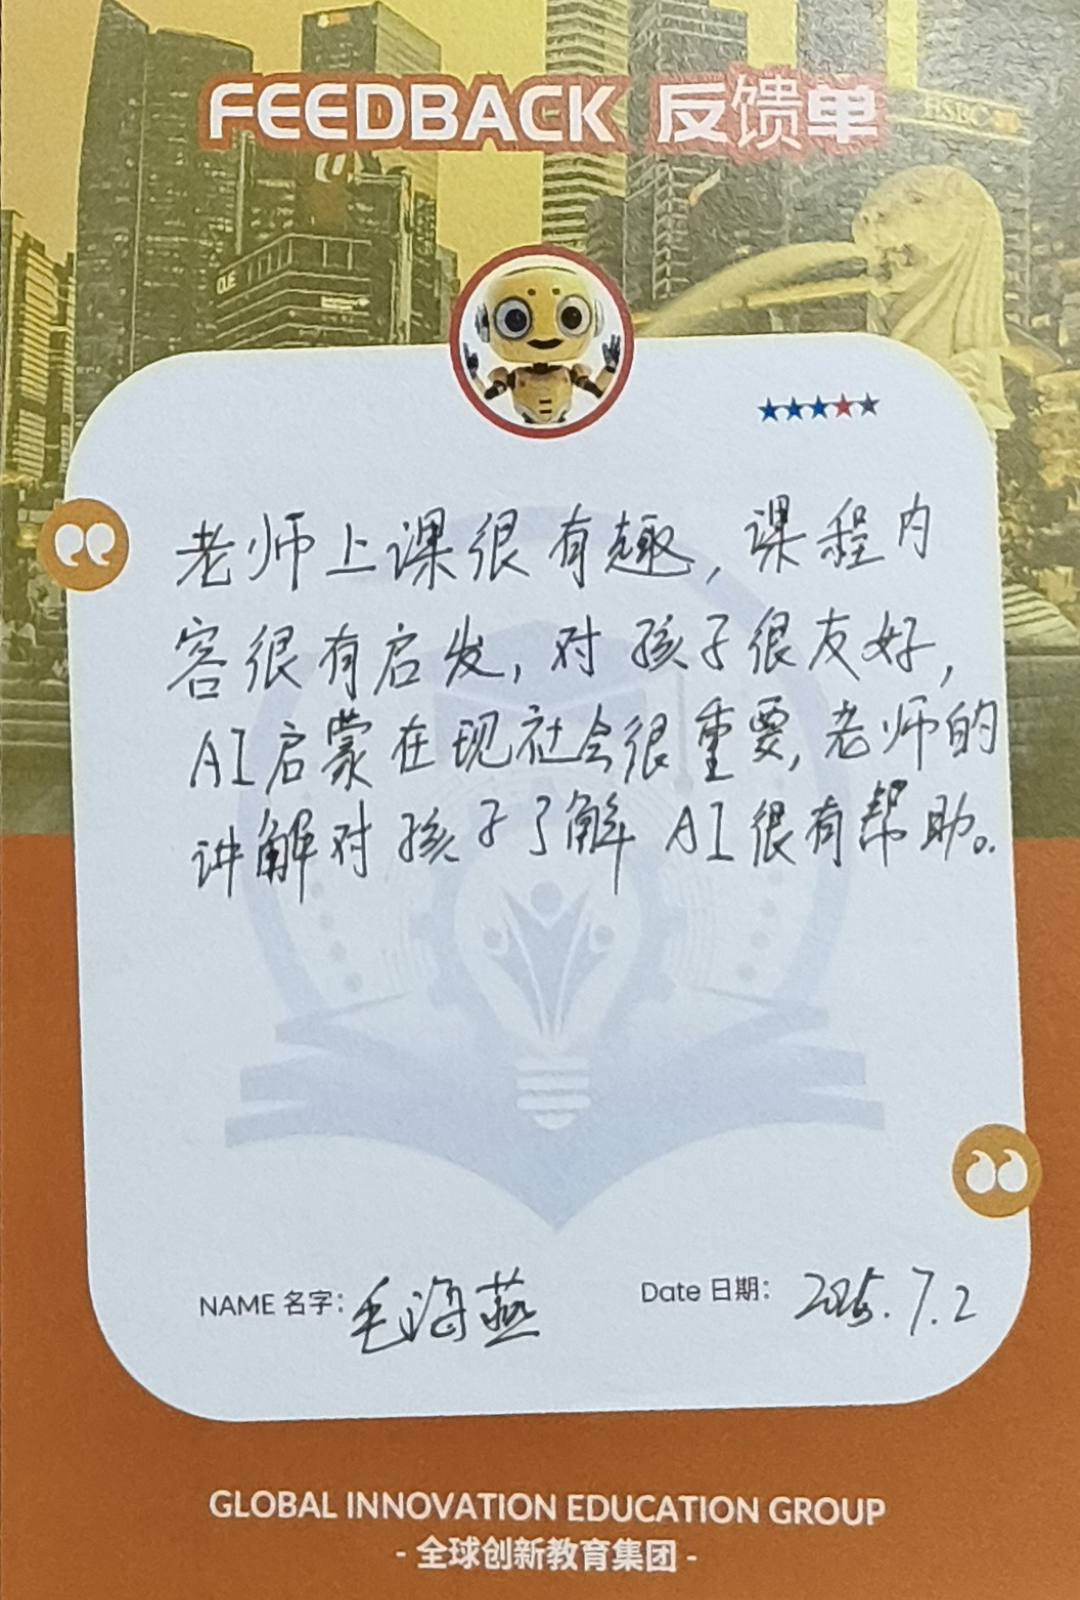 FEEDBACK 反馈单
HSBC
老师上课很有趣，课程内
容很有启发，对孩子很友好，
AI启蒙在现社会很重要，老师的
讲解对孩子了解AI很有帮助。
NAME 名字：毛海燕
Date 日期：2025.7.2
GLOBAL INNOVATION EDUCATION GROUP
- 全球创新教育集团 -